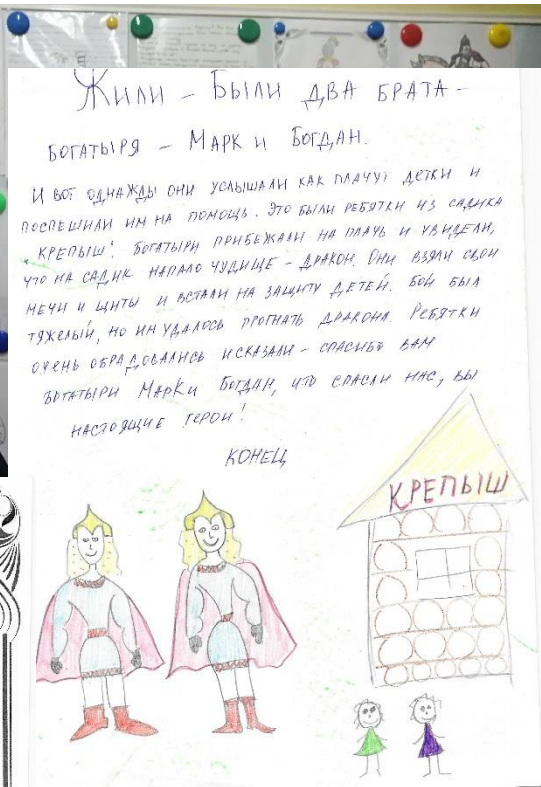 Жили - Были два брата -
богатыря - Марк и Богдан.
И вот однажды они услышали как плачут детки и
поспешили им на помощь. Это были ребятки из садика
„Крепыш". Богатыри прибежали на плачь и увидели,
что на садик напало чудище - дракон. Они взяли свои
мечи и щиты и встали на защиту детей. Бой был
тяжелый, но им удалось прогнать дракона. Ребятки
очень обрадовались и сказали - спасибо вам
богатыри Марк и Богдан, что спасли нас, вы
настоящие герои!
Конец
КРЕПЫШ